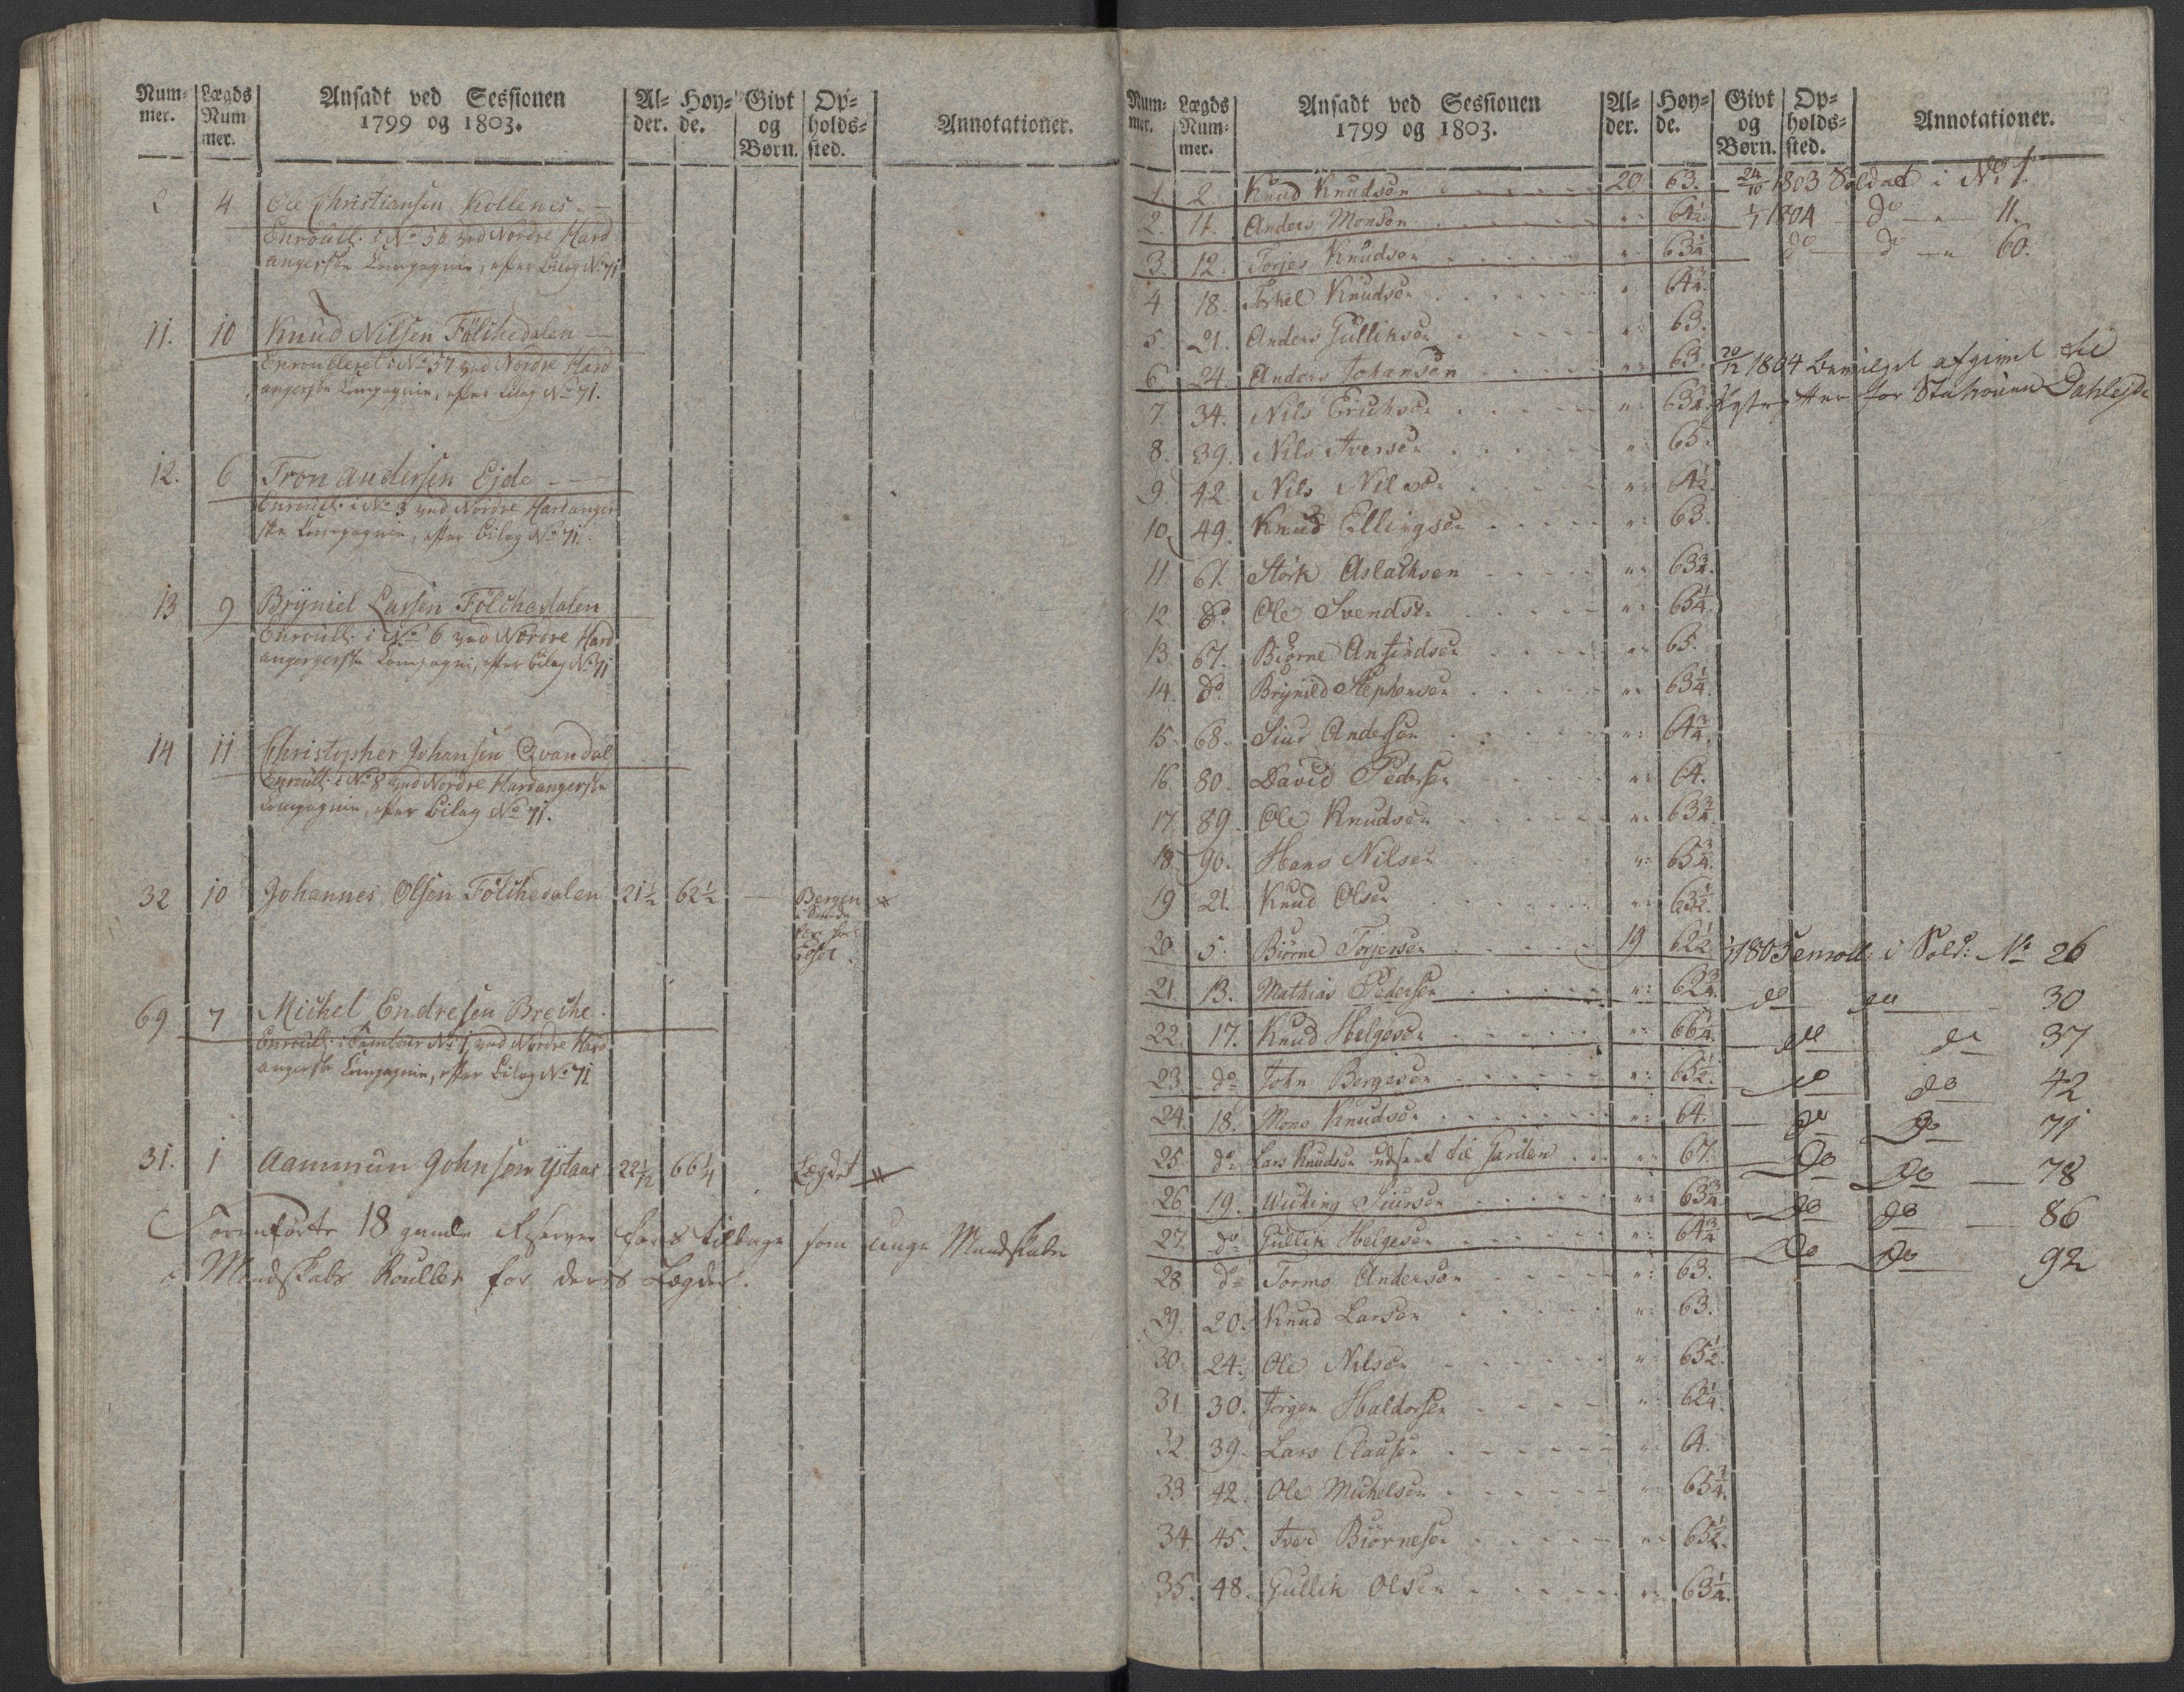 Num- Lægds Ansadt ved Sessionen Al- Høy- Givt Op- Annotationer.
mer. Num 1799 og 1803. der. de. og holds-
mer. Børn. sted.
2 4 Ole Christiansen Kollenes
Enroull. i No 56 ved Nordre Hard
angerske Compagnie, efter Bilag No 71
11. 10 Knud Nilsen Fölchedalen
Enroulleret i No 57 ved Nordre Hard
angerske Compagnie, efter Bilag No 71.
12. 6 Tron Andersen Eide
Enroull. i No 3 ved Nordre Hardanger
ske Compagnie, efter Bilag No 71.
13 9 Brÿniel Larsen Fölchedalen
Enroull. i No 6 ved Nordre Hard
angergerske Compagni, efter Bilag No 71
14 11 Christopher Johansen Qvandal
Enroull. i No 8 ved Nordre Hardangerske
Compagnie, efter Bilag No 71.
32 10 Johannes Olsen Fölchedalen 21½ 62½ — Bergen
69 7 Michel Endresen Breche
Enroull. i Tambour No 1 ved Nordre Hard
angerske Compagnie, efter Bilag No 71.
31. 1 Aammun Johnsen Ystaas 22 1/12 66¼ Lægdet
Foranførte 18 gamle Reserver føres tilbage som unge Mandskaber
i Mandskabs Roullen for deres Lægder.
Num- Lægds Ansadt ved Sessionen Al- Høy- Givt Op- Annotationer.
mer. Num- 1799 og 1803. der. de. og holds-
mer. Børn. sted.
1. 2. Knud Knudsen 20. 63. 24/10 1803 Soldat i No 1.
2. 11. Anders Monsen " 64½ 1/1 1804 do " 11.
3. 12. Torjes Knudsen " 63¼ do do " 60.
4 18. Torkel Knudsen " 64¾
5. 21. Anders Gulliksen " 63.
6. 24. Anders Johansen " 63. 20/12 1804 bevilget afgivet til
7. 34. Nils Erichsen " 63¼ for Dahlsje
8. 39. Nils Iversen " 65.
9. 42. Nils Nilsen " 64½
10. 49. Knud Ellingsen " 63.
11 61. Störk Aslaksen " 63¾.
12 do Ole Svendsen " 63¼.
13. 67. Biörne Anfindsen " 65.
14. do Brynild Stephensen " 63¼.
15. 68. Siur Andersen " 64¾
16 80. David Pedersen " 64.
17 89. Ole Knudsen " 63¾
18 90. Hans Nilsen " 65¾
19 21. Knud Olsen " 63½.
20. 5. Biörne Torjersen 19 62½ 1805 enroll: i Sold: No 26
21. 13. Mathias Pedersen " 62¾. do do 30
22. 17. Knud Helgesen " 66¼. do do 37
23 do John Bergesen " 65½. do do 42
24. 18. Mons Knudsen " 64. do do 71
25. do Lars Knudsen udsent til Garden " 67. do do 78
26 19. Wiching Siursen " 63¾ do do 86
27. do Gullik Helgesen " 64¾ do do 92
28. do Tormo Andersen " 63.
29. 20. Knud Larsen " 63.
30. 24. Ole Nilsen " 65½.
31. 30. Jörgen Haldorsen " 62¼.
32. 39. Lars Clausen " 64.
33 42. Ole Michelsen " 65¾.
34. 45. Iver Biörnesen " 65½.
35. 48. Gullik Olsen " 63¼.